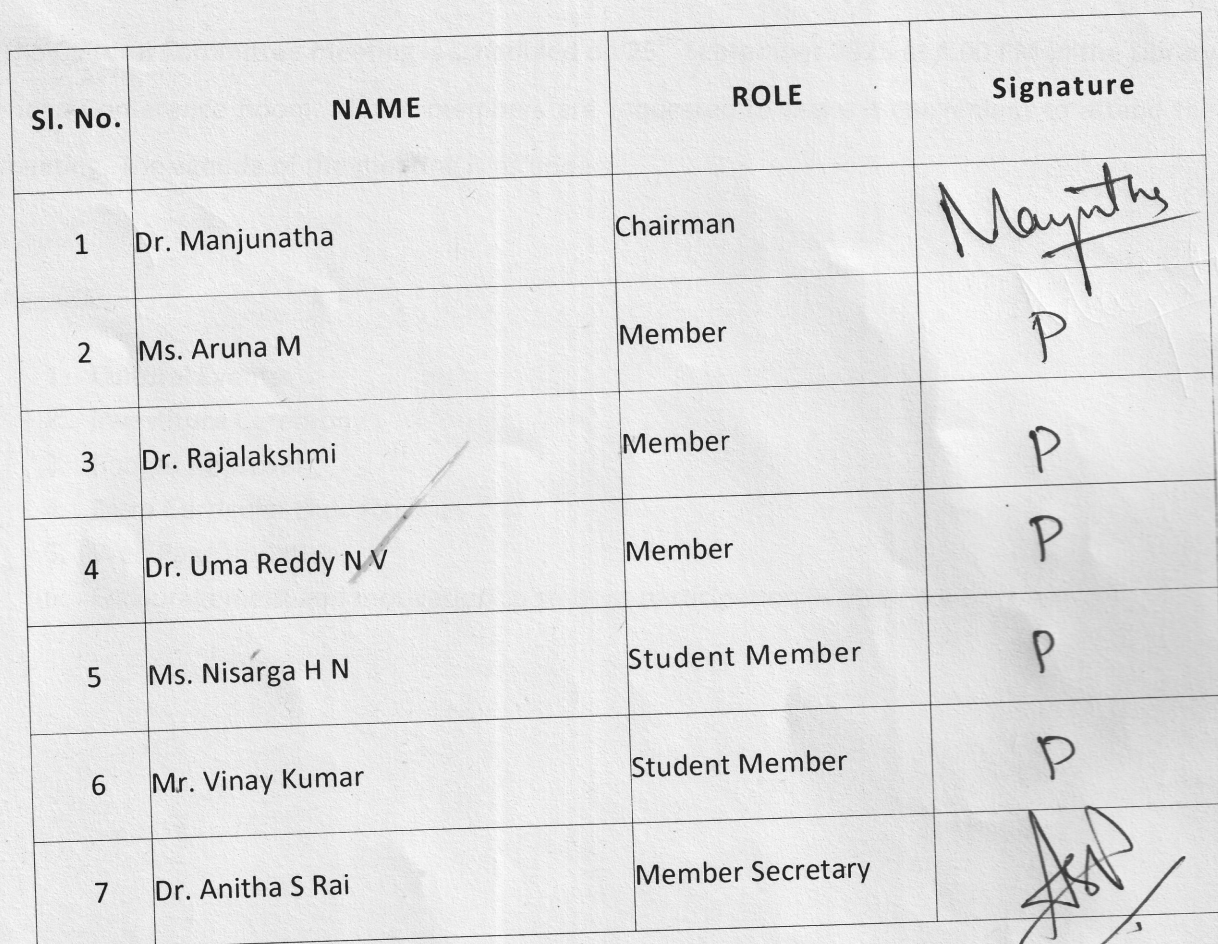 Sl. No. NAME ROLE Signature
1 Dr. Manjunatha Chairman Manjunatha
2 Ms. Aruna M Member P
3 Dr. Rajalakshmi Member P
4 Dr. Uma Reddy N V Member P
5 Ms. Nisarga H N Student Member P
6 Mr. Vinay Kumar Student Member P
7 Dr. Anitha S Rai Member Secretary